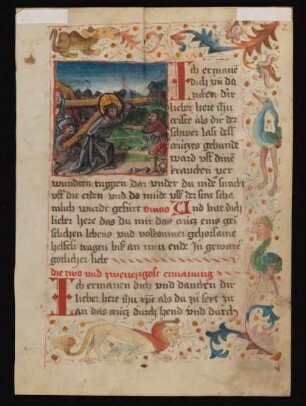 Ich ermane
dich vn da
ncken dir
lieber here ihu
criste als dir der
schwer last dess
crützes gebunde
ward vff dinē
krancken ver
wundten ruggen Das vnder du nide sunckt
vff die erden vnd da mide vff der stat schē
mlich wurdt gefürt Vnd bit dich
lieber here das du mir das crütz eins gei
stlichen lebens vnd volkomner gehorsame
helfest tragen biß an min end In gewarer
götlicher liebe
die zwo vnd zwentzigost ermanung
Ich ermanen dich vnd dancken dir
lieber here ihu xpē als du zů sert
an das crütz durch hend vnd durch